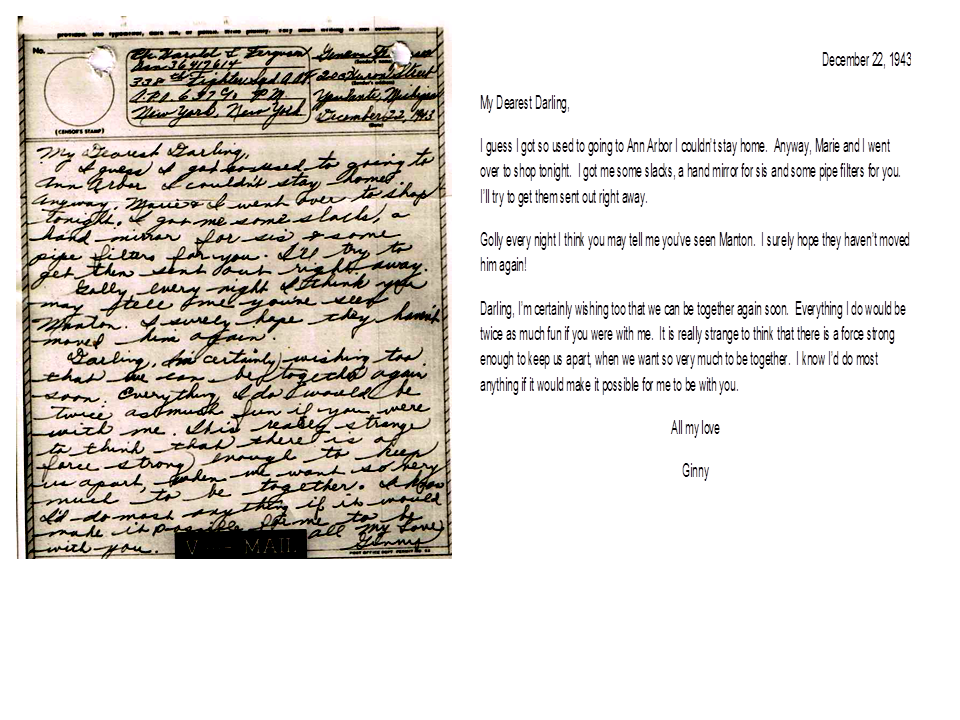 provided. Use typewriter, dark ink, or pencil. Write plainly. Very small writing is not suitable.
No.
(CENSOR'S STAMP)
Pfc. Harold L Ferguson
Asn 36417614
338th Fighter Sqd. A.A.F.
A.P.O. 637 c/o P.M.
New York, New York
Geneva
(Sender's name)
Huron Street
(Sender's address)
Ypsilanti, Michigan
December 22, 1943
(Date)
My Dearest Darling,
I guess I got so used to going to
Ann Arbor I couldn't stay home.
Anyway, Marie & I went over to shop
tonight. I got me some slacks, a
hand mirror for sis & some
pipe filters for you. I'll try to
get them sent out right away.
Golly every night I think you
may tell me you've seen
Manton. I surely hope they haven't
moved him again.
Darling, I'm certainly wishing too
that we can be together again
soon. Everything I do would be
twice as much fun if you were
with me. It is really strange
to think that there is a
force strong enough to keep
us apart, when we want so very
much to be together. I know
I'd do most anything if it would
make it possible for me to be
with you.
All my love
Ginny
V··· — MAIL
POST OFFICE DEPT. PERMIT NO.
December 22, 1943
My Dearest Darling,
I guess I got so used to going to Ann Arbor I couldn't stay home. Anyway, Marie and I went
over to shop tonight. I got me some slacks, a hand mirror for sis and some pipe filters for you.
I'll try to get them sent out right away.
Golly every night I think you may tell me you've seen Manton. I surely hope they haven't moved
him again!
Darling, I'm certainly wishing too that we can be together again soon. Everything I do would be
twice as much fun if you were with me. It is really strange to think that there is a force strong
enough to keep us apart, when we want so very much to be together. I know I'd do most
anything if it would make it possible for me to be with you.
All my love
Ginny